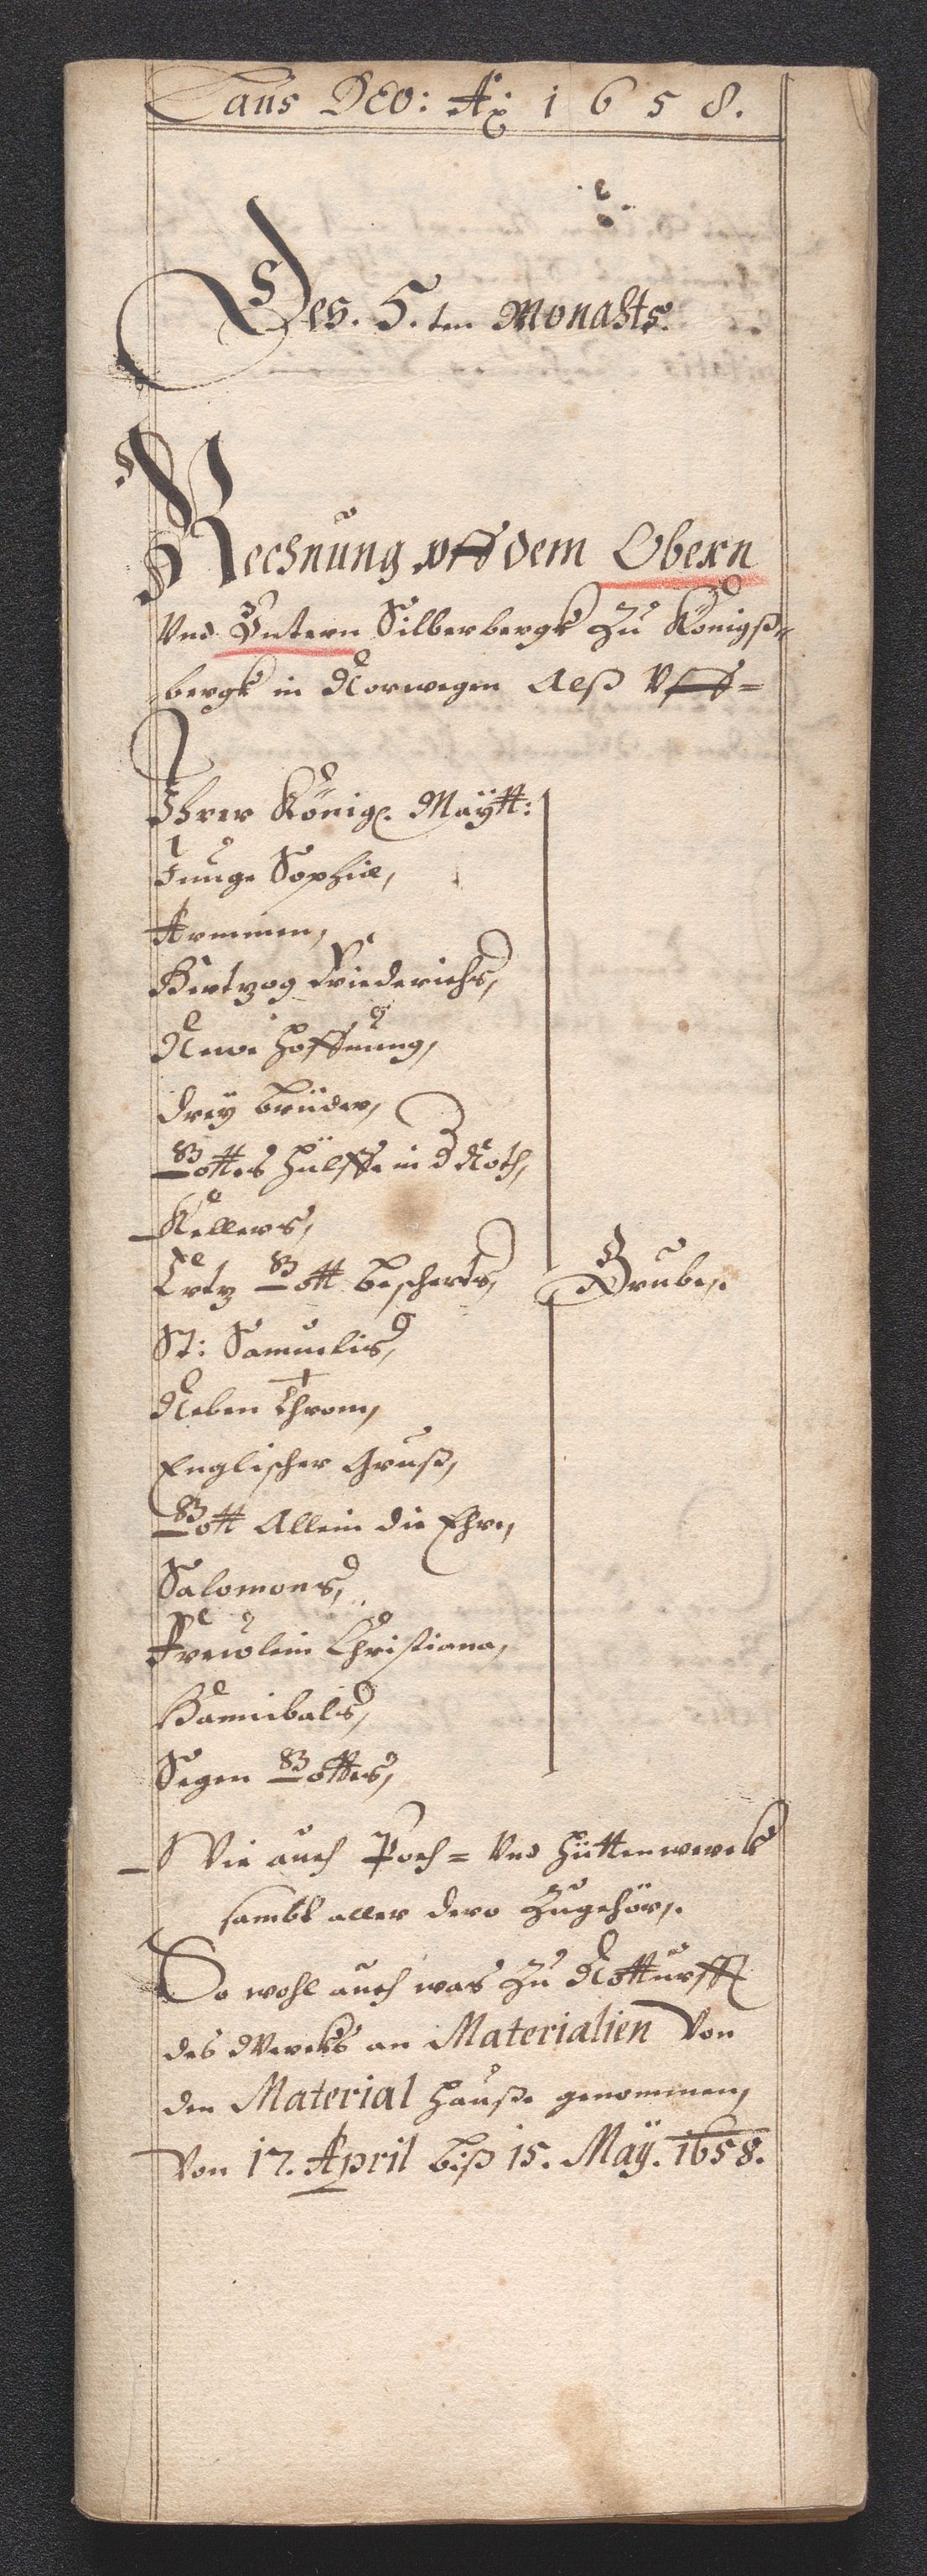 Laus DEO: Aō 1658.
Des. 5.ten Monahts.
Rechnung vff dem Obern
Vnd Vntern Silberbergk Zu Königß-
bergk in Norwegen Alß Vff=
Ihrer Königl. Maÿtt:
Junge Sophiæ,
Armmen,
Hertzog Friederichs,
Newe Hoffnung,
Dreÿ Brüder,
Gottes Hülffe in d Noth,
Kellers,
Ertz Gott bescherts, Grube,.
St: Samuelis,
Neben Throm,
Englischer Gruß,
Gott Allein die Ehre,
Salomons,
Frewlein Christiana,
Hannibals,
Segen Gottes,
Wie auch Poch= Vnd Hüttenwerck
sambt aller dero Zugehör,.
So wohl auch was Zu Notturfft
des Wercks an Materialien Von
den Material Hauße genommen,
Von 17. April biß 15. Maÿ. 1658.